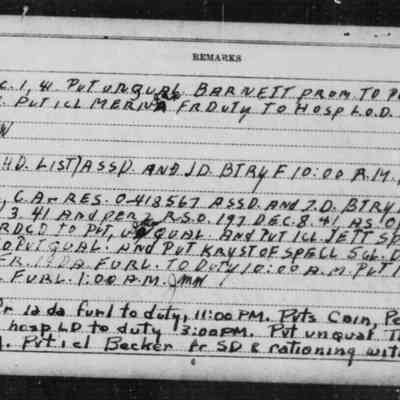 REMARKS
C. 1, 41 PVT UNQUAL. BARNETT PROM TO P
PVT 1CL MERIN FR DUTY TO HOSP L.O.D.
HD. LIST) ASSD. AND JD. BTRY F 10:00 A.M.
, C.A - RES. O-413567 ASSD. AND JD. BTRY
3 41 AND per R.S.O. 197 DEC. 8. 41 AS. O
RDCD TO PVT, UNQUAL. AND PVT 1CL. JETT SP
O PVT QUAL. AND PVT KRYSTOF SPELL 5 GL. D
FR. 12 DA FURL. TO DUTY 10:00 A.M. PVT 1
FURL. 1:00 A.M. JMN
Fr 12 da furl to duty, 11:00 PM. Pvts Coin, Po
hosp LD to duty 3:00 PM. Pvt unqual. Th
Pvt 1cl Becker fr SD & rationing with
6